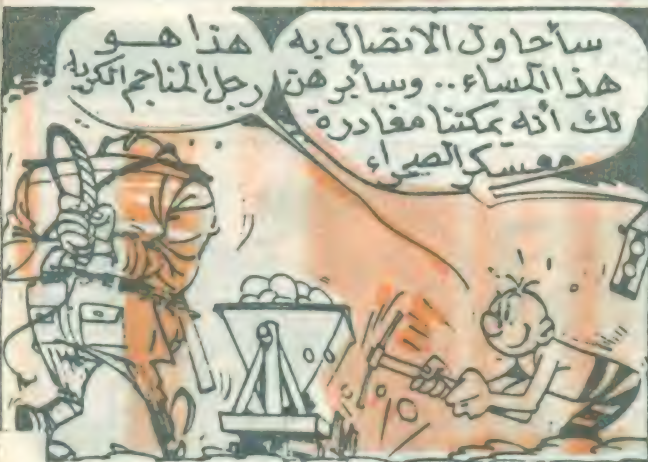 سأحاول الاتصال به
هذا المساء.. وسأبرهن
لك أنه يمكننا مغادرة
معسكر الصحراء
هذا هو
رجل المناجم الكريه